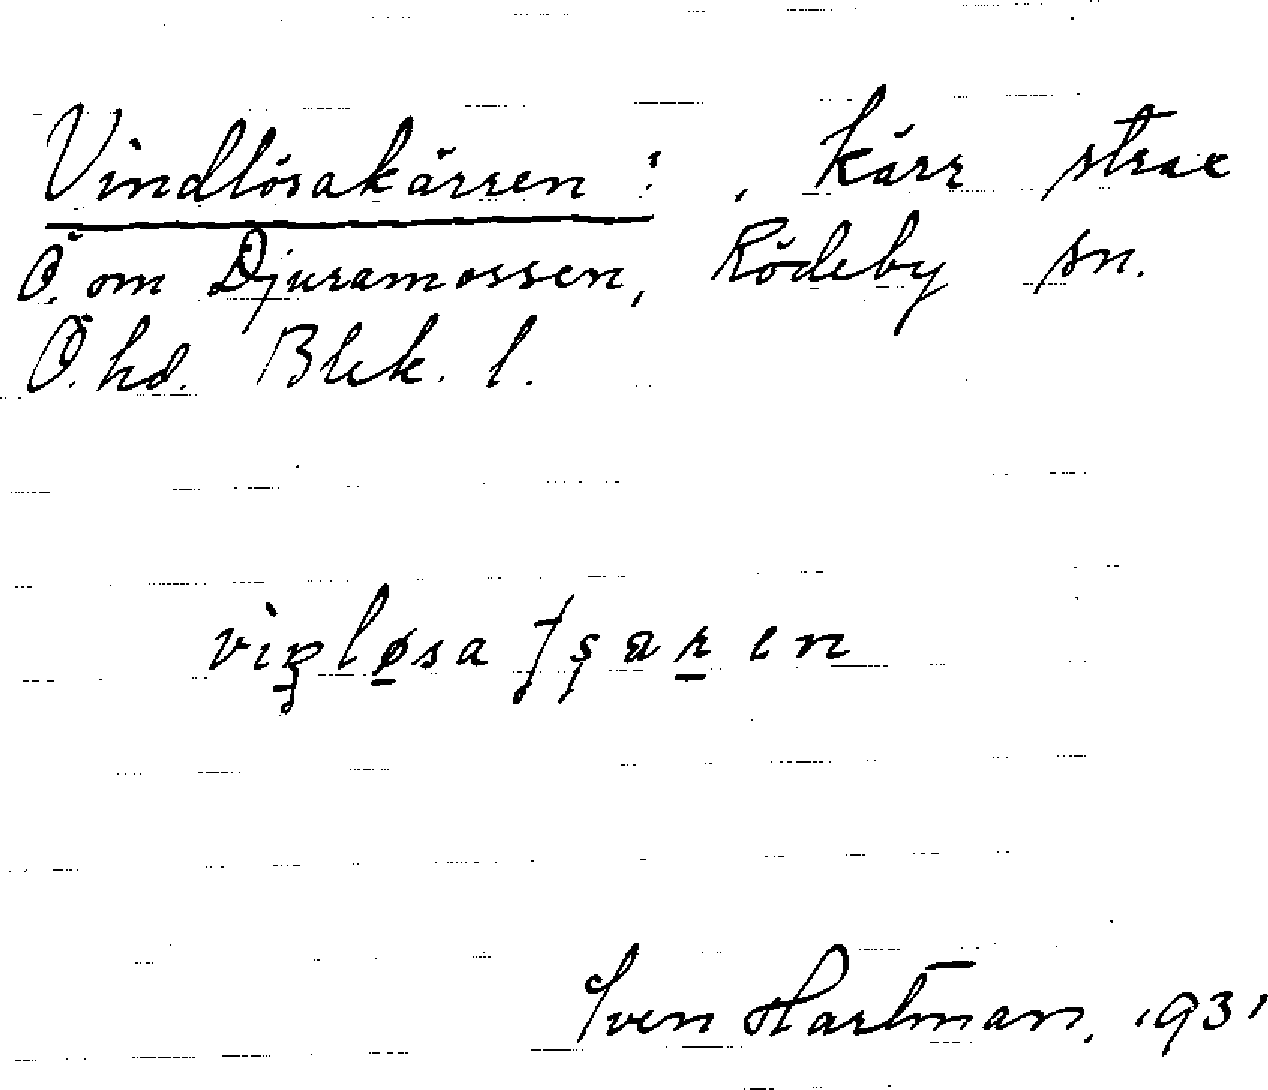 Vindlösakärren !, kärr strax
Ö. om Djuramossen, Rödeby sn.
Ö. hd. Blek. l.
Sven Hartman, 1931